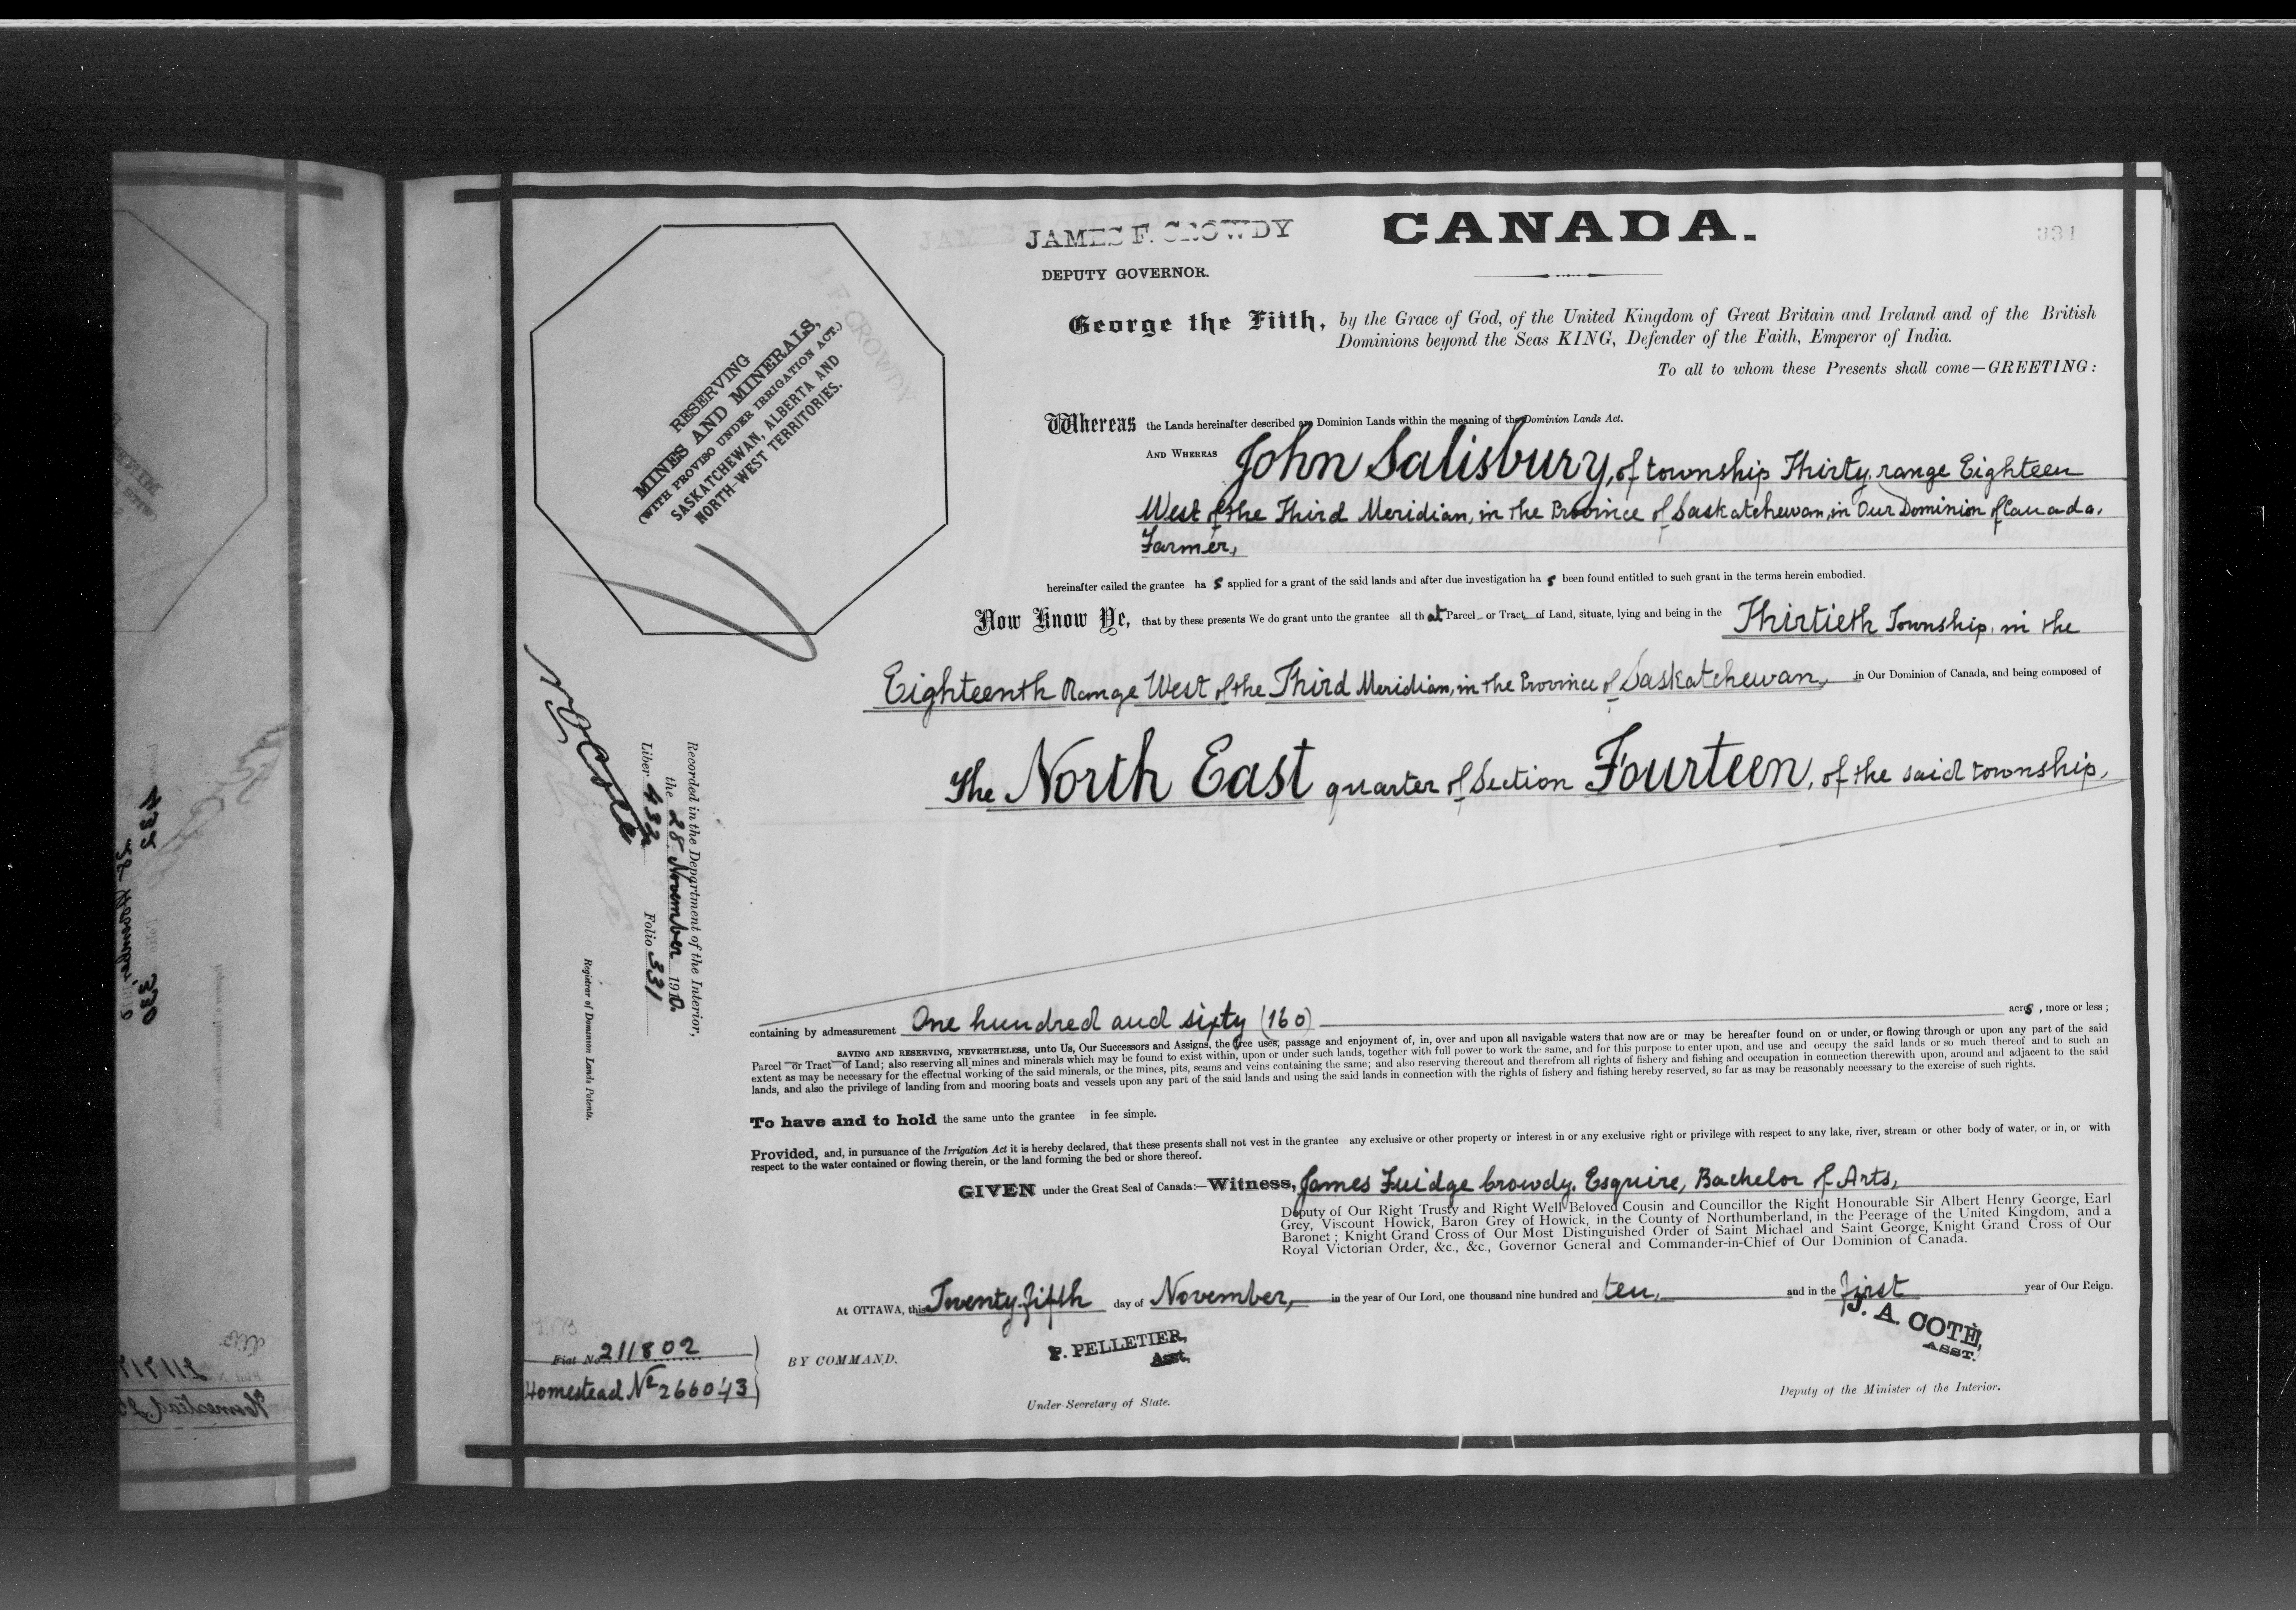 JAMES F. CROWDY
CANADA.
331
DEPUTY GOVERNOR.
George the Fifth, by the Grace of God, of the United Kingdom of Great Britain and Ireland and of the British
Dominions beyond the Seas KING, Defender of the Faith, Emperor of India.
To all to whom these Presents shall come—GREETING:
J. F. CROWDY
RESERVING
MINES AND MINERALS,
(WITH PROVISO UNDER IRRIGATION ACT.)
SASKATCHEWAN, ALBERTA AND
NORTH-WEST TERRITORIES.
Whereas the Lands hereinafter described are Dominion Lands within the meaning of the Dominion Lands Act.
AND WHEREAS John Salisbury, of township Thirty, range Eighteen
West of the Third Meridian, in the Province of Saskatchewan, in Our Dominion of Canada,
Farmer,
hereinafter called the grantee ha s applied for a grant of the said lands and after due investigation ha s been found entitled to such grant in the terms herein embodied.
Now Know Ye, that by these presents We do grant unto the grantee all that Parcel or Tract of Land, situate, lying and being in the Thirtieth Township, in the
Eighteenth Range West of the Third Meridian, in the Province of Saskatchewan, in Our Dominion of Canada, and being composed of
The North East quarter of Section Fourteen, of the said township,
Recorded in the Department of the Interior,
the 28 November 1910.
Liber 432 Folio 331
N O Coté
Registrar of Dominion Lands Patents.
containing by admeasurement One hundred and sixty (160) acres, more or less;
SAVING AND RESERVING, NEVERTHELESS, unto Us, Our Successors and Assigns, the free uses, passage and enjoyment of, in, over and upon all navigable waters that now are or may be hereafter found on or under, or flowing through or upon any part of the said
Parcel or Tract of Land; also reserving all mines and minerals which may be found to exist within, upon or under such lands, together with full power to work the same, and for this purpose to enter upon, and use and occupy the said lands or so much thereof and to such an
extent as may be necessary for the effectual working of the said minerals, or the mines, pits, seams and veins containing the same; and also reserving thereout and therefrom all rights of fishery and fishing and occupation in connection therewith upon, around and adjacent to the said
lands, and also the privilege of landing from and mooring boats and vessels upon any part of the said lands and using the said lands in connection with the rights of fishery and fishing hereby reserved, so far as may be reasonably necessary to the exercise of such rights.
To have and to hold the same unto the grantee in fee simple.
Provided, and, in pursuance of the Irrigation Act it is hereby declared, that these presents shall not vest in the grantee any exclusive or other property or interest in or any exclusive right or privilege with respect to any lake, river, stream or other body of water, or in, or with
respect to the water contained or flowing therein, or the land forming the bed or shore thereof.
GIVEN under the Great Seal of Canada:—Witness, James Fuidge Crowdy, Esquire, Bachelor of Arts,
Deputy of Our Right Trusty and Right Well-Beloved Cousin and Councillor the Right Honourable Sir Albert Henry George, Earl
Grey, Viscount Howick, Baron Grey of Howick, in the County of Northumberland, in the Peerage of the United Kingdom, and a
Baronet; Knight Grand Cross of Our Most Distinguished Order of Saint Michael and Saint George, Knight Grand Cross of Our
Royal Victorian Order, &c., &c., Governor General and Commander-in-Chief of Our Dominion of Canada.
At OTTAWA, this Twenty-fifth day of November, in the year of Our Lord, one thousand nine hundred and ten, and in the first year of Our Reign.
Fiat No 211802
Homestead No 266043
BY COMMAND.
P. PELLETIER,
Asst.
Under-Secretary of State.
J. A. COTÉ,
ASST.
Deputy of the Minister of the Interior.